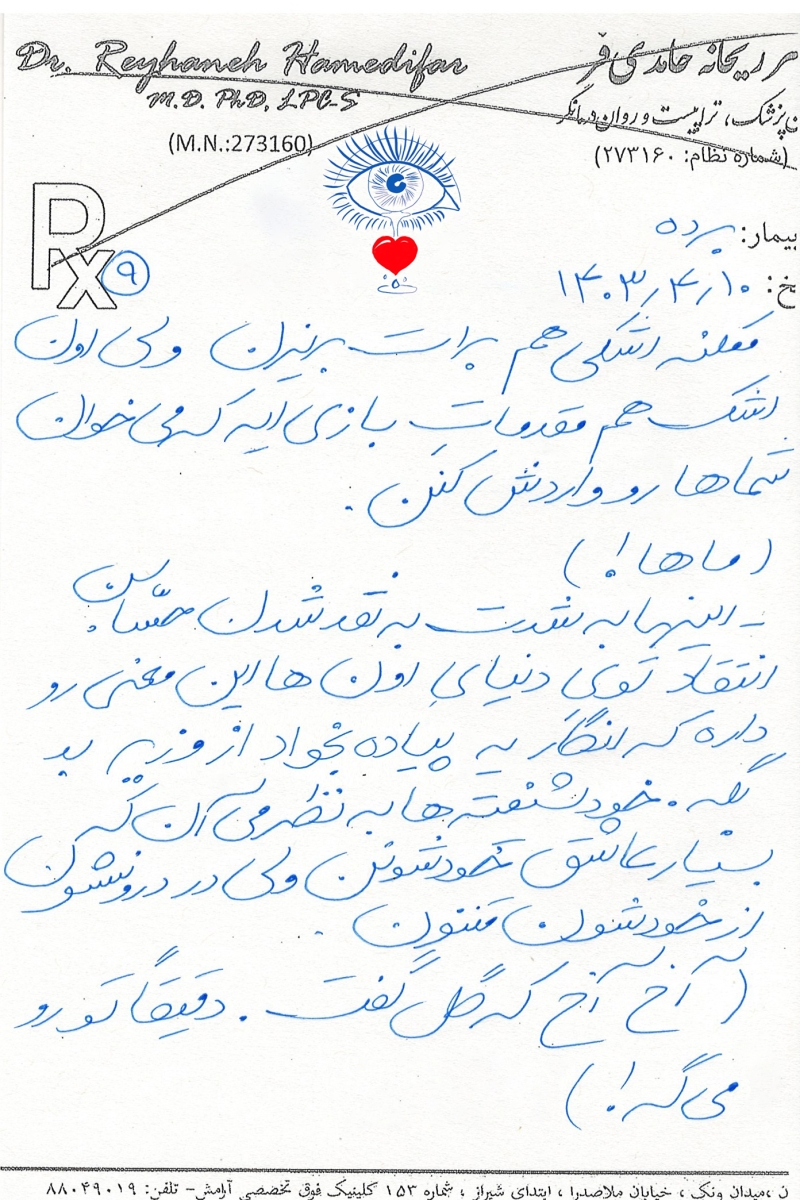 Dr. Reyhaneh Hamedifar
M.D. PhD, LPC-S
(M.N.:273160)
ر ریحانه حامدی فر
ن‌پزشک، تراپیست و روان درمانگر
(شماره نظام: ۲۷۳۱۶۰)
Rx ۹
بیمار: پرده
خ: ۱۴۰۳٫۴٫۱۰
ممکنه اشکی هم برات بریزن ولی اون
اشک هم مقدمات بازی ایه که می خوان
شماها رو واردش کنن.
(ماها!)
- اینها به شدت به نقد شدن حسّاسن
انتقاد توی دنیای اون ها این معنی رو
داره که انگار یه پیاده بخواد از وزیر بد
بگه. خودشیفته ها به نظر می آن که
بسیار عاشق خودشونن ولی در درونشون
از خودشون متنفرن.
(آخ آخ که گل گفت. دقیقاً تو رو
می گه!)
ن، میدان ونک، خیابان ملاصدرا، ابتدای شیراز، شماره ۱۵۳ کلینیک فوق تخصصی آرامش- تلفن: ۸۸۰۴۹۰۱۹